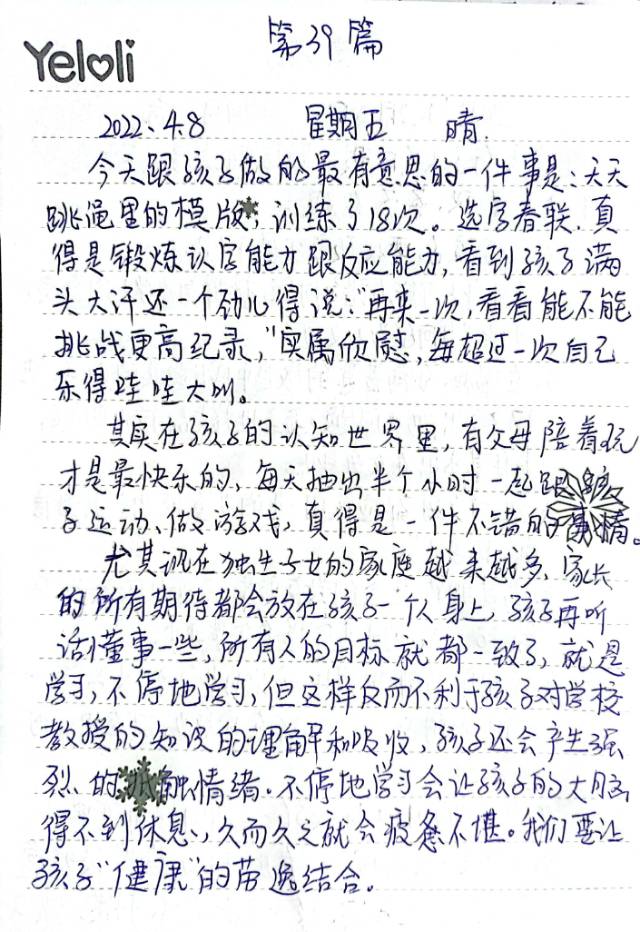 Yeloli
第39篇
2022.4.8 星期五 晴
今天跟孩子做的最有意思的一件事是:天天
跳绳里的模版,训练了18次。选字春联.真
得是锻炼认字能力跟反应能力,看到孩子满
头大汗还一个劲儿得说:"再来一次,看看能不能
挑战更高纪录,"实属欣慰,每超过一次自己
乐得哇哇大叫。
其实在孩子的认知世界里,有父母陪着玩
才是最快乐的,每天抽出半个小时一起跟孩
子运动、做游戏,真得是一件不错的事情。
尤其现在独生子女的家庭越来越多,家长
的所有期待都会放在孩子一个人身上,孩子再听
话懂事一些,所有人的目标就都一致了,就是
学习,不停地学习,但这样反而不利于孩子对学校
教授的知识的理解和吸收,孩子还会产生强
烈的抵触情绪.不停地学习会让孩子的大脑
得不到休息、久而久之就会疲惫不堪。我们要让
孩子"健康"的劳逸结合。